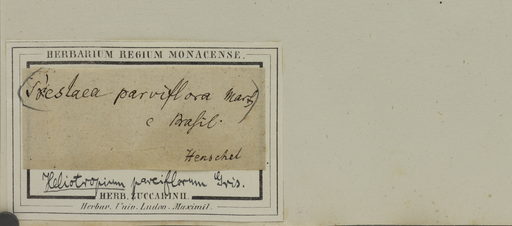 HERBARIUM REGIUM MONACENSE.
(Preslaea parviflora Mart.)
e Brasil.
Henschel
Heliotropium parviflorum Gris.
HERB. ZUCCARINII.
Herbar. Univ. Ludov. Maximil.